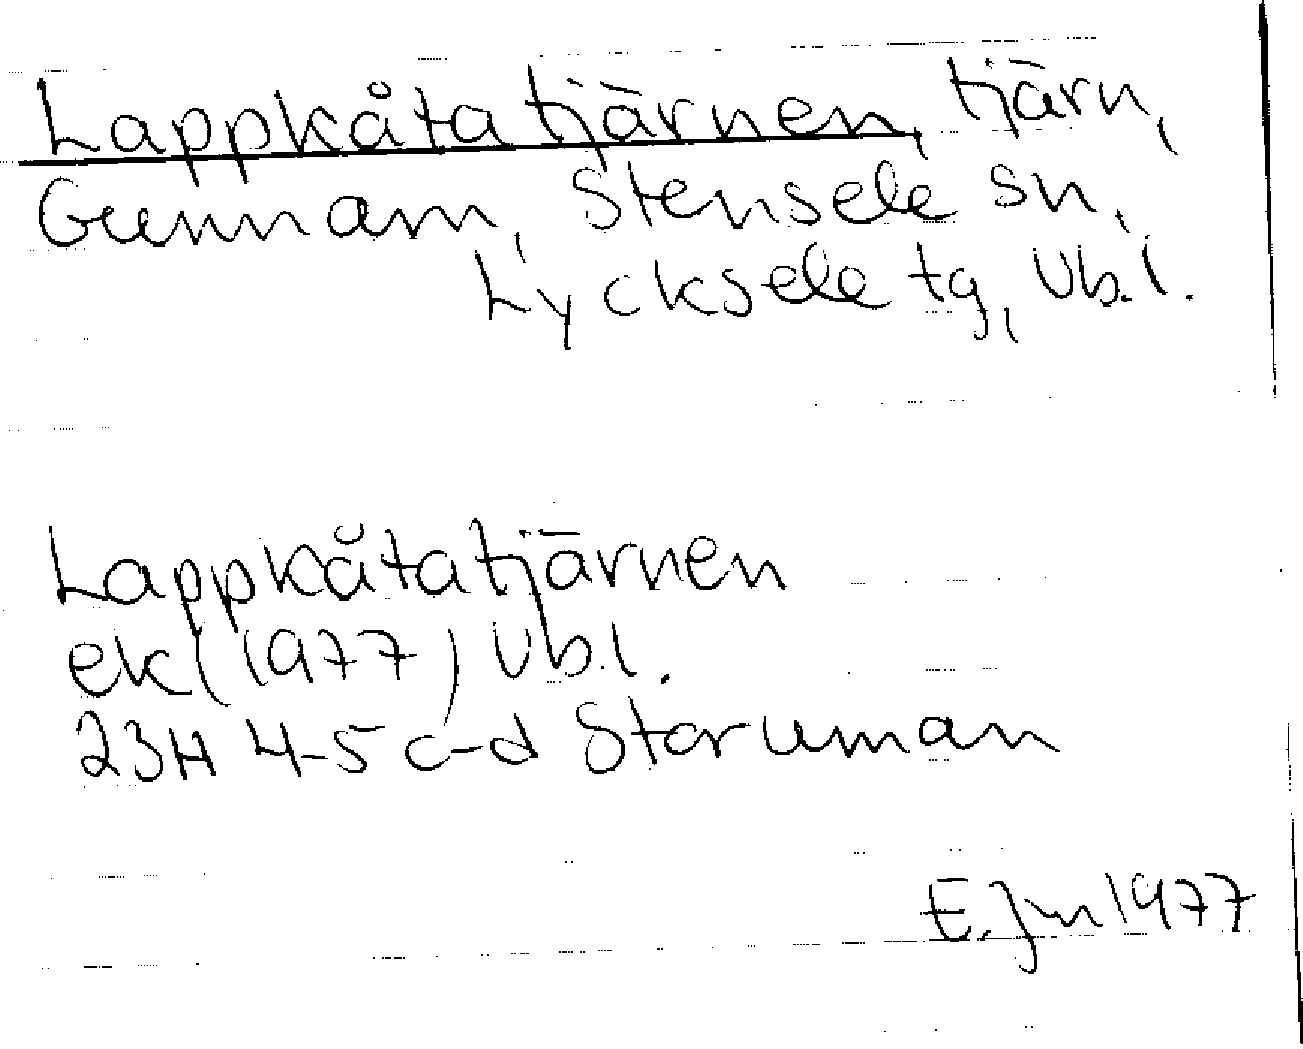 Lappkåtatjärnen, tjärn,
Gunnarn, Stensele sn,
Lycksele tg, Vb.l.
Lappkåtatjärnen
ek (1977) Vb.l.
23H 4-5 c-d Storuman
E. Jm 1977